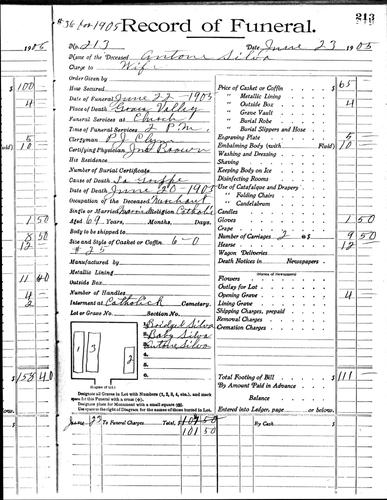 # 36 for 1905
Record of Funeral.
213
1905
No. 213
Date June 23 1905
Name of the Deceased Antone Silva
Charge to Wife
Order Given by
How Secured
Date of Funeral June 22 - 1905
Place of Death Grass Valley
Funeral Services at Church
Time of Funeral Services 2 P.m.
Clergyman P J Clyne
Certifying Physician Jno Brown
His Residence
Number of Burial Certificate
Cause of Death La Grippe
Date of Death June 20 - 1905
Occupation of the Deceased Merchant
Single or Married Married Religion Catholic
Aged 69 Years, Months, Days.
Body to be shipped to
Size and Style of Casket or Coffin 6-0
# 25
Manufactured by
Metallic Lining
Outside Box
Number of Handles
Interment at Catholick Cemetery.
Lot or Grave No. Section No.
1 3 2
1. Bridget Silva
2. Baby Silva
3. Antone Silva
4.
5.
(Diagram of Lot.)
Designate all Graves in Lot with Numbers (1, 2, 3, 4, etc.), and mark
space for this Funeral with a cross (+).
Designate place for Monument with a small square (□).
Use space to right of Diagram for the names of those buried in Lot.
June 23 To Funeral Charges Total, $ 101 50
101 50
Price of Casket or Coffin $ 65
" Metallic Lining
" Outside Box 4
" Grave Vault
" Burial Robe
" Burial Slippers and Hose
Engraving Plate 5
Embalming Body (with Fluid) 10
Washing and Dressing
Shaving
Keeping Body on Ice
Disinfecting Rooms
Use of Catafalque and Drapery
" Folding Chairs
" Candelabrum
Candles
Gloves 1 50
Crape
Number of Carriages 2 @ $ 9 50
Hearse 12
Wagon Deliveries
Death Notices in Newspapers
(Names of Newspapers)
Flowers
Outlay for Lot
Opening Grave 4
Lining Grave
Shipping Charges, prepaid
Removal Charges
Cremation Charges
Total Footing of Bill $ 111
By Amount Paid in Advance
Balance
Entered into Ledger, page or below.
By Cash
$ 100
4
5
10
1 50
8 50
12
11 40
4
2
$ 158 40